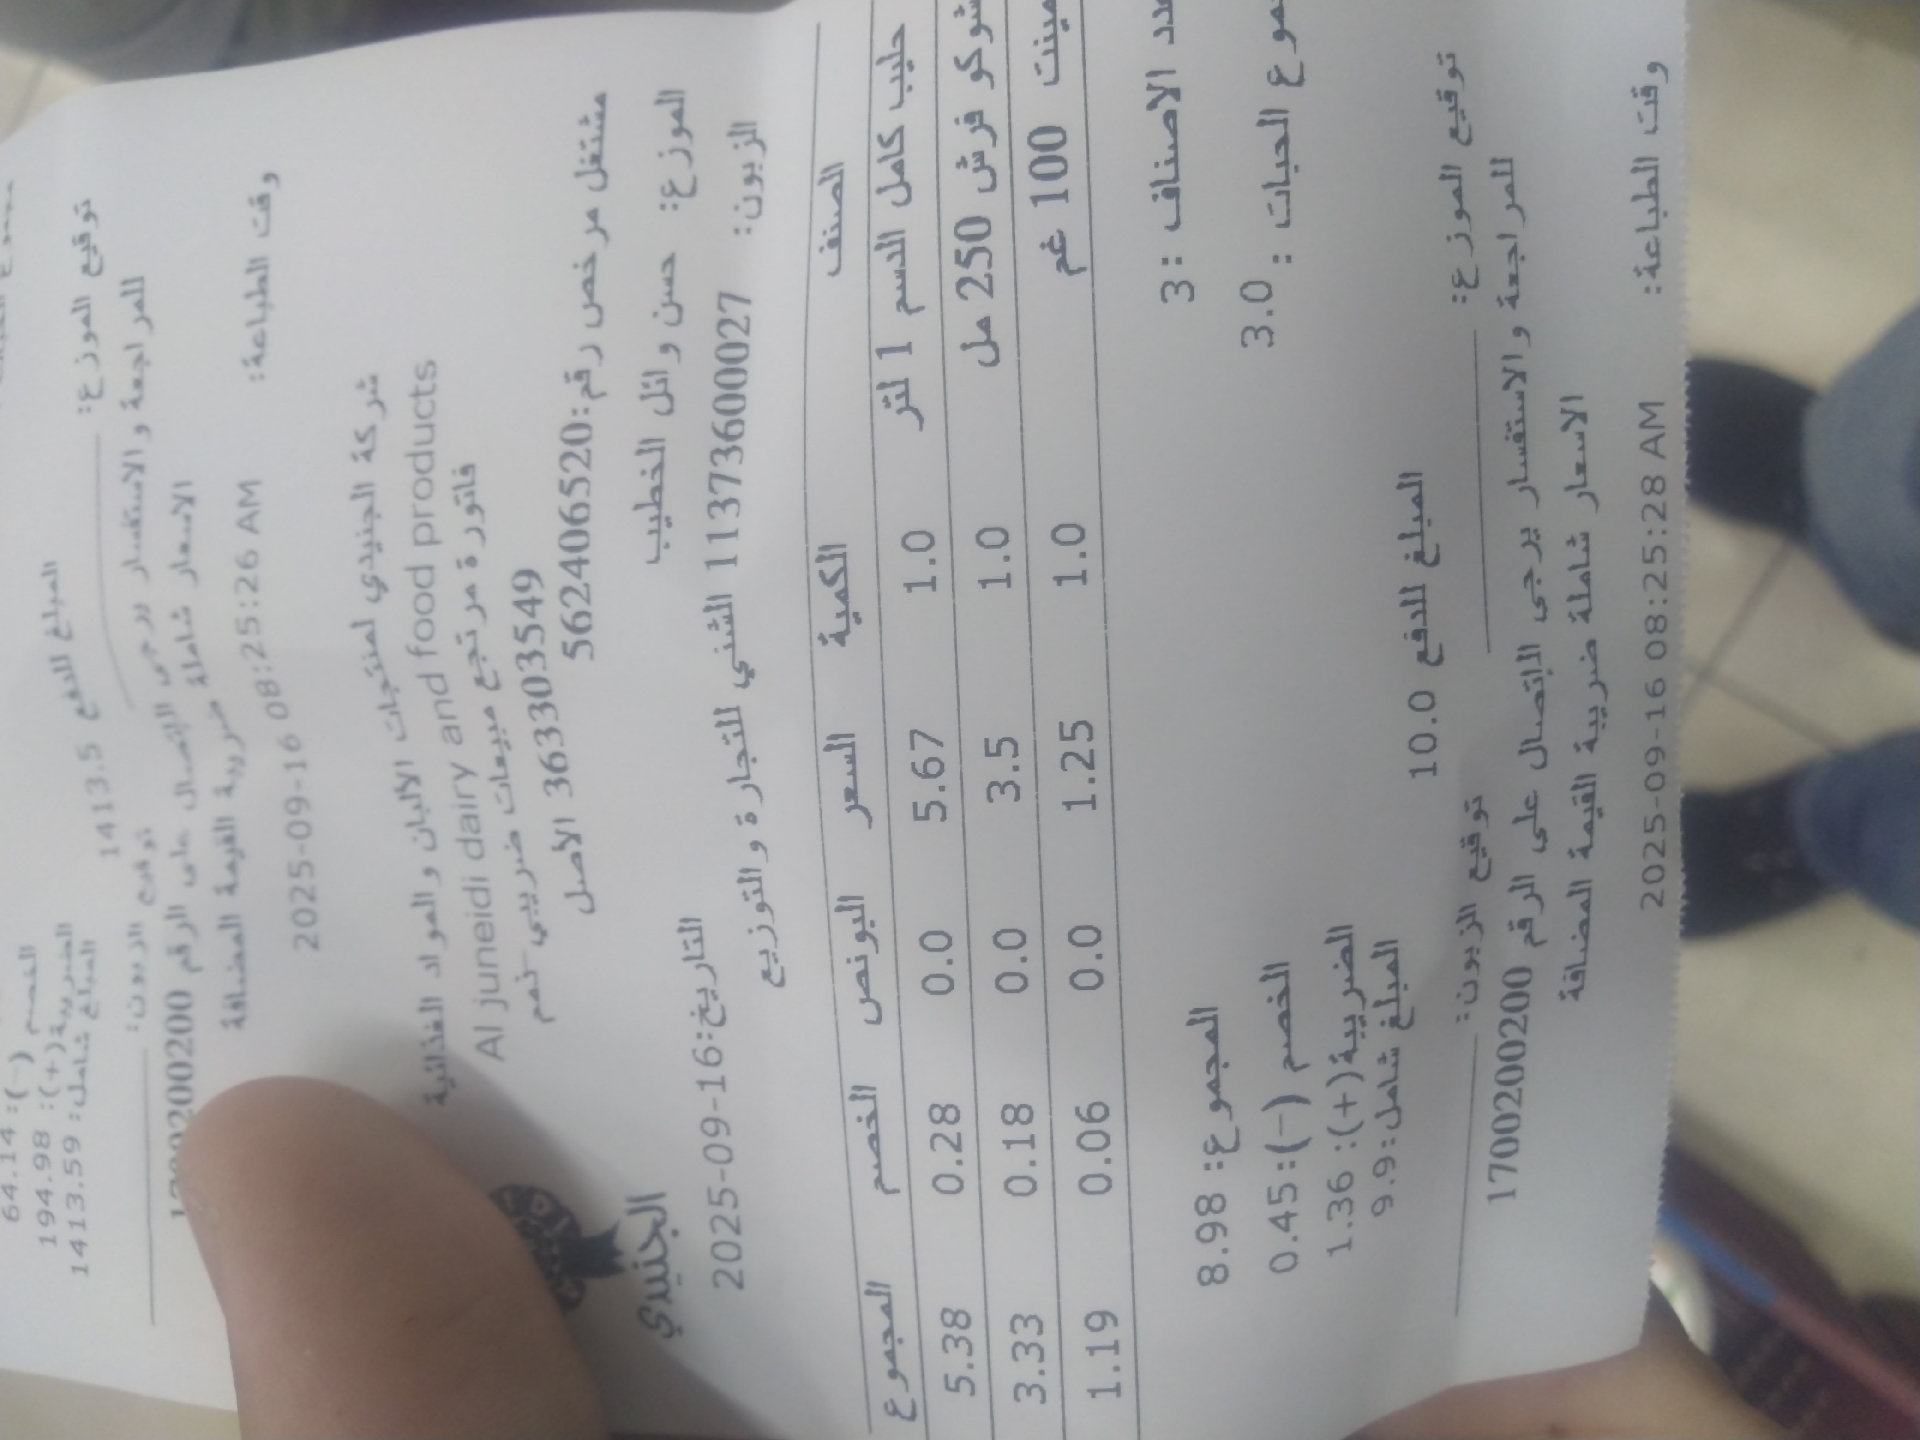 الخصم (-): 64.14
الضريبة(+): 194.98
المبلغ شامل: 1413.59
المبلغ للدفع 1413.5
توقيع الموزع:
توقيع الزبون:
للمراجعة والاستفسار يرجى الإتصال على الرقم
الاسعار شاملة ضريبة القيمة المضافة
وقت الطباعة: 2025-09-16 08:25:26 AM
شركة الجنيدي لمنتجات الالبان والمواد الغذائية
Al juneidi dairy and food products
فاتورة مرتجع مبيعات ضريبي-نعم
3633303549 الاصل
مشتغل مرخص رقم:562406520
الجنيدي
الموزع: حسن وائل الخطيب
التاريخ:2025-09-16
الزبون: 1137360027 الشني للتجارة والتوزيع
الصنف الكمية السعر البونص الخصم المجموع
حليب كامل الدسم 1 لتر 1.0 5.67 0.0 0.28 5.38
شوكو فرش 250 مل 1.0 3.5 0.0 0.18 3.33
100 غم 1.0 1.25 0.0 0.06 1.19
الاصناف : 3
المجموع: 8.98
الحبات : 3.0
الخصم (-): 0.45
الضريبة(+): 1.36
المبلغ شامل: 9.9
المبلغ للدفع 10.0
توقيع الموزع: توقيع الزبون:
للمراجعة والاستفسار يرجى الإتصال على الرقم 1700200200
الاسعار شاملة ضريبة القيمة المضافة
وقت الطباعة: 2025-09-16 08:25:28 AM